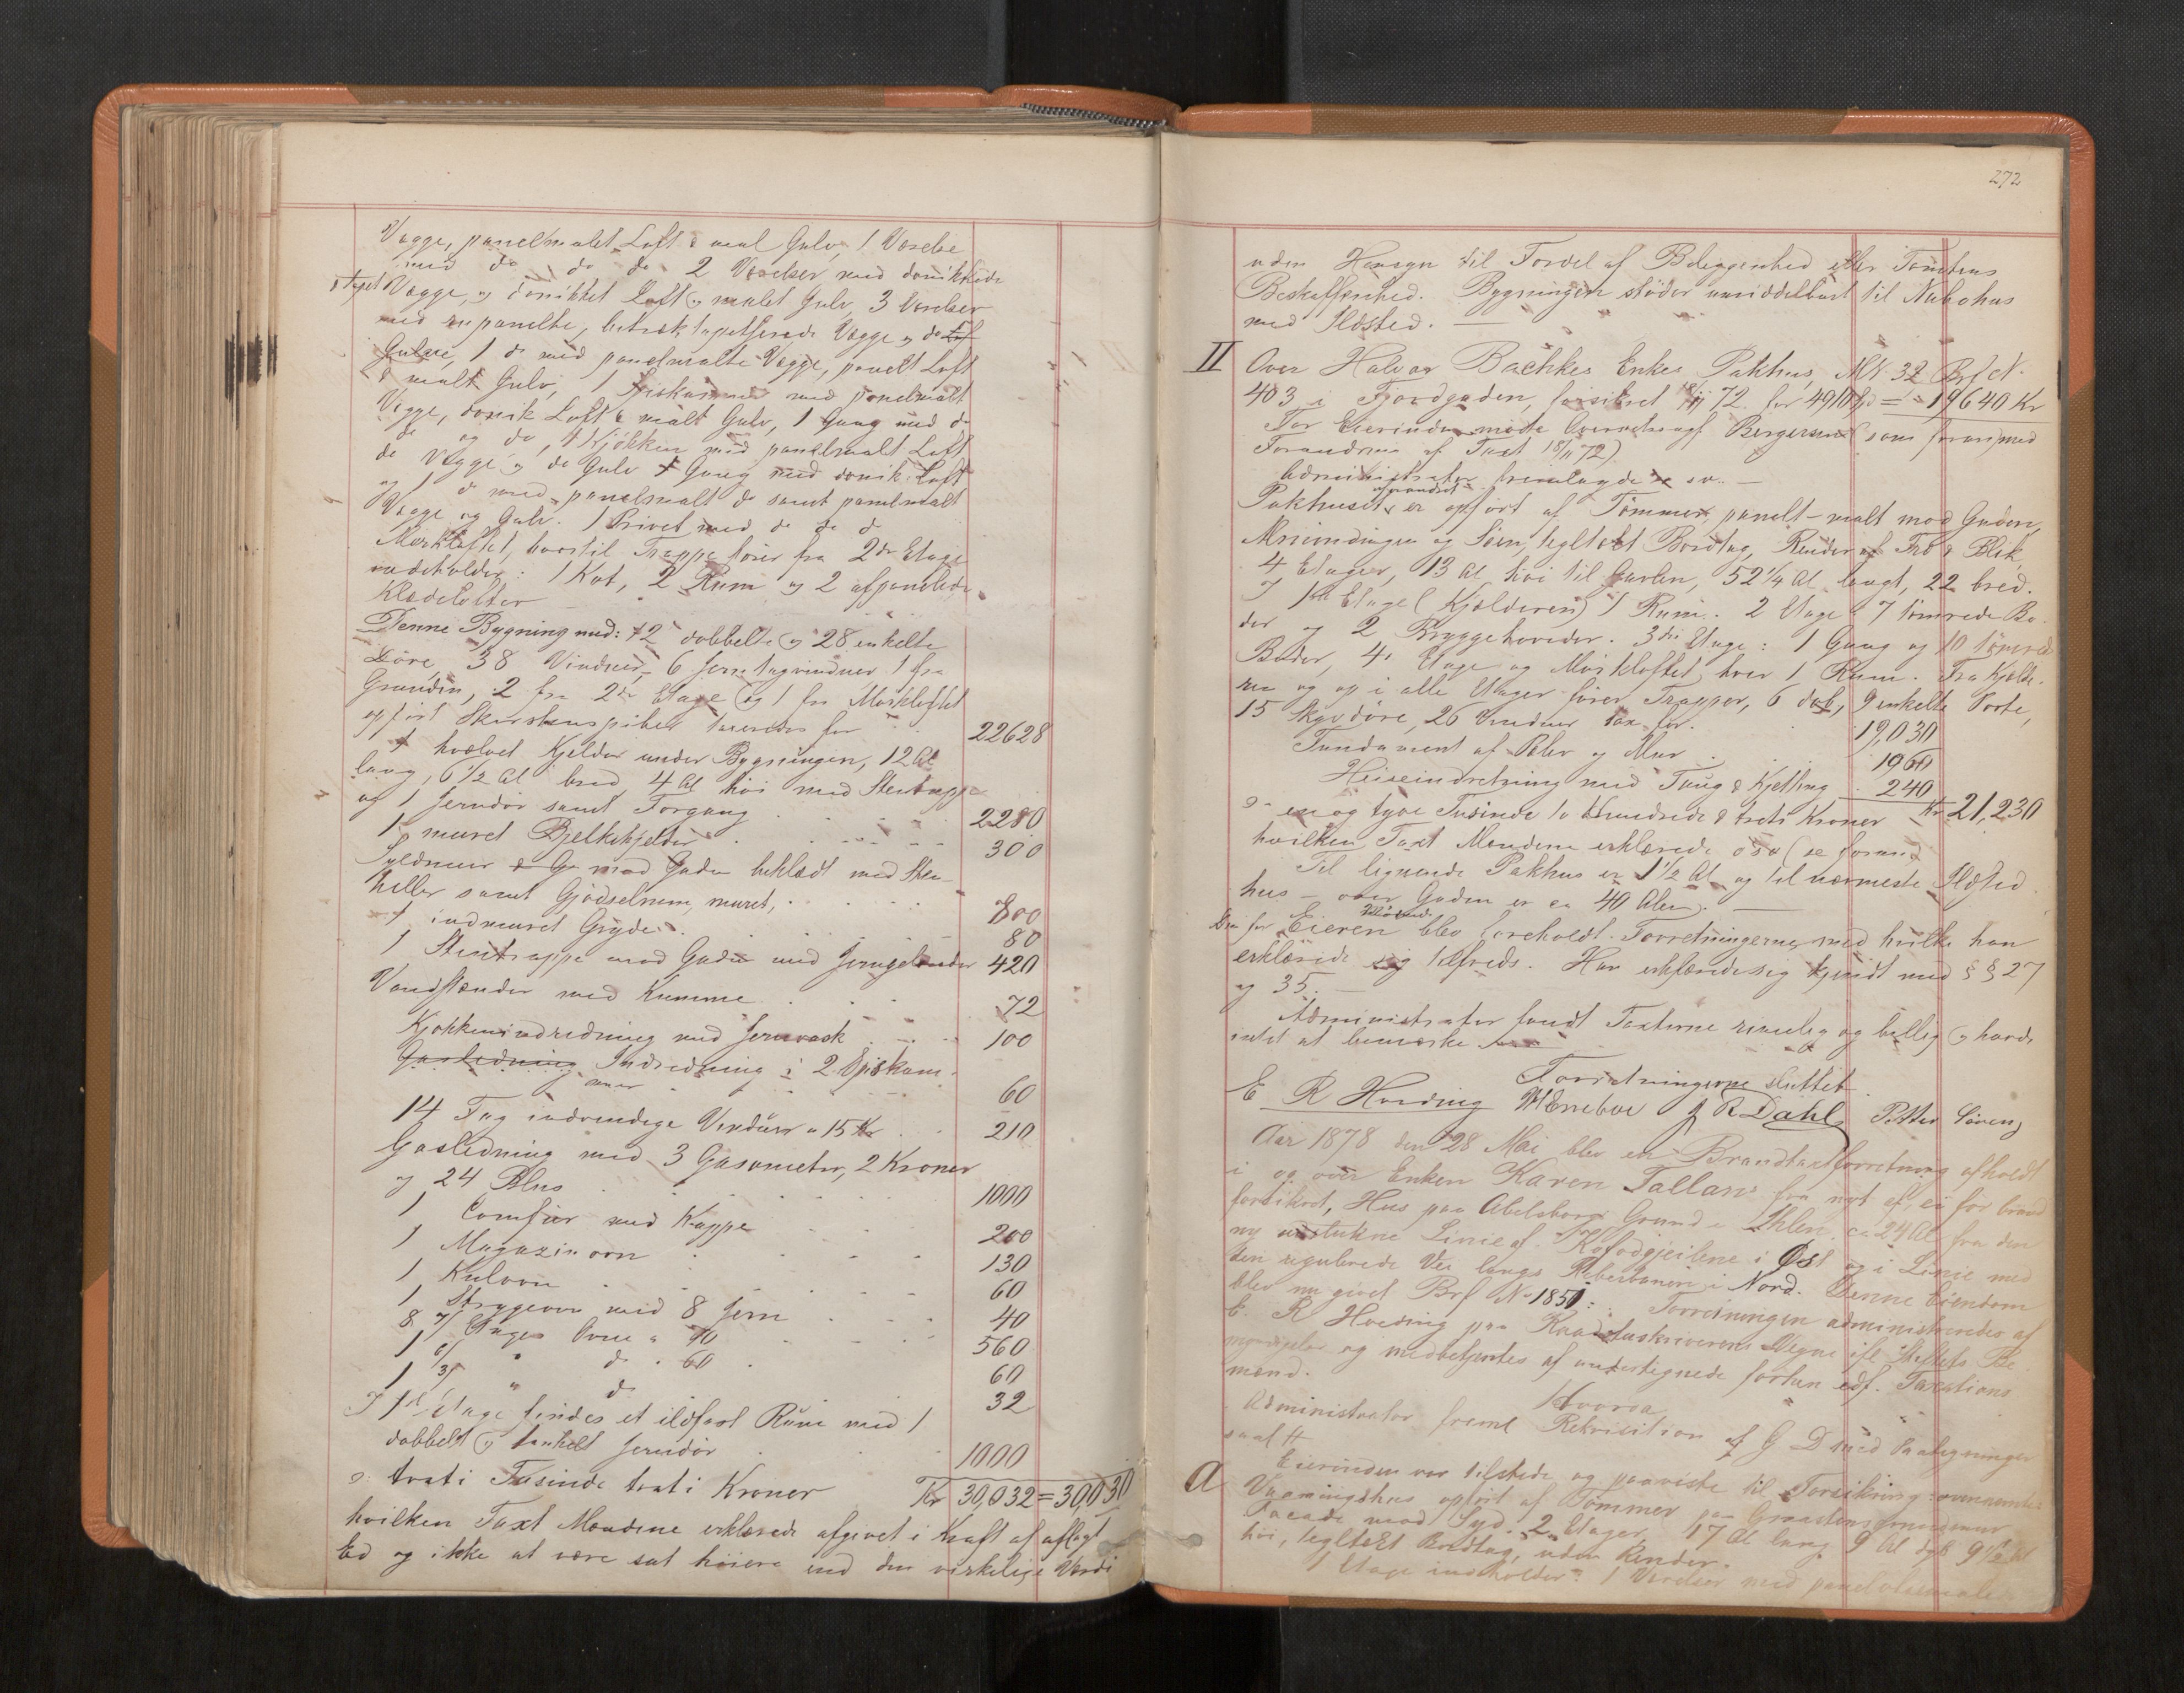 Vægge, panelmalet Loft & mal Gulv, 1 Værelse
med do do do 2 Værelser med donikkede
& tapet Vægge, og donikket Loft og malet Gulv, 3 Værelser
med panelte, betræk tapetserede Vægge og do
Gulve, 1 do med panelmalte Vægge, panelt Loft
& malt Gulv, 1 Spiskammer med panelmalt
Vægge, donik Loft & malt Gulv, 1 Gang med do
do og do, 1 Kjøkken med panelmalt Loft
do Vægge og do Gulv 1 Gang med donik. Loft
og 1 do med panelmalt do samt panelmalt
Vægge og Gulv. 1 Privet med do do do
Mørkloftet, hvortil Trappe fører fra 2den Etage
indeholder: 1 Kot, 2 Rum og 2 afpanelede
Klædelofter
Denne Bygning med: 12 dobbelte og 28 enkelte
Døre, 38 Vinduer, 6 Jerntagvinduer 1 fra
Grunden, 2 fra 2den Etage og 1 fra Mørkloftet
opført Skorstenspiber taxeredes for 22628
1 hvælvet Kjelder under Bygningen, 12 Al
lang, 6 1/2 Al bred 4 Al høi med Stentrappe
og 1 Jerndør samt Forgang 2280
1 muret Bjelkekjelder 300
Syldmuur mod Gaden beklædt med Sten-
heller samt Gjødselrum, muret, 800
1 indmuret Gryde 80
1 Stentrappe mod Gaden med Jerngelænder 420
Vandstænder med Kumme 72
Kjøkkenindredning med Jernvask 100
Gasledning Indredning i 2 Spiskam-
mer 60
14 Fag indvendige Vinduer a 15 Kr 210
Gasledning med 3 Gasometer, 2 Kroner
og 24 Blus 1000
1 Comfur med Kappe 200
1 Magazin ovn 130
1 Kulovn 60
1 Strygeovn med 8 Jern 40
8 7/ Etages Ovne a 70 560
1 6/ " do 60 60
1 3/ " do 32
I 1ste Etage findes et ildfast Rum med 1
dobbelt og 1 enkelt Jerndør 1000
o: treti Tusinde treti Kroner Kr 30,032 = 30,030
hvilken Taxt Mændene erklærede afgivet i Kraft af aflagt
Ed og ikke at være sat høiere end den virkelige Værdi
272
uden Hensyn til Fordel af Beliggenhed eller Tomtens
Beskaffenhed. Bygningen støder umiddelbart til Nabohus
med Ildsted.
II Over Halvor Bachkes Enkes Pakhus, MN. 32 Brf N.
403 i Fjordgaden, forsikret 18/11 72 for 4910 Spd = 19640 Kr
For Eierinden mødte Overretssagf Bergersen (som foran med
Forandring af Taxt 18/11 72)
Administrator fremlagde o sv.
Pakhuset uforandret er opført af Tømmer, panelt - malt mod Gaden,
Almindingen og Søen, tegltækt Bordtag, Render af Træ & Blik,
4 Etager, 13 Al høi til Gavlen, 52 1/4 Al langt, 22 bred.
I 1ste Etage (Kjælderen) 1 Rum. 2 Etage 7 tømrede Bo-
der og 2 Bryggehoveder. 3die Etage: 1 Gang og 10 tømrede
Boder, 4de Etage og Mørkloftet hver 1 Rum. Fra Kjelde-
ren og op i alle Etager fører Trapper, 6 dob, 9 enkelte Porte,
15 Skyvdøre, 26 Vinduer tax for 19,030
Fundament af Pæler og Mur 1960
Heiseindretning med Taug & Kjetting 240
o: en og tyve Tusinde to Hundrede & treti Kroner Kr 21,230
hvilken Taxt Mændene erklærede o s v (se foran)
Til lignende Pakhus er 1 1/2 Al og til nærmeste Ildsted
hus - over Gaden er ca 40 Alen.
Den for Eieren Mødende blev foreholdt Forretningerne, med hvilke han
erklærede sig tilfreds. Han erklærede sig kjendt med § § 27
og 35.
Administrator fandt Taxterne rimelig og billig og havde
intet at bemærke
Forretningerne sluttet
E R Hveding WÆreboe J R Dahl Petter Sivertz
Aar 1878 den 28 Mai blev en Brandtaxtforretning afholdt
i og over Enken Karen Tallars fra nyt af, ei før brand
forsikret, Hus paa Abelsborg Grund i Ihlen, ca 24 Al fra den
ny udstukne Linie af Kofodgjeilene i Øst og i Linie med
den regulerede Vei langs Reberbanen i Nord. Denne Eiendom
blev nu givet Brf No 1851. Forretningen administreredes af
E. R Hveding paa Raadstueskriverens Vegne ifl Stiftets Be-
myndigelse og medbetjentes af undertegnede forten edf. Taxations
mænd.
Hvorda
Administrator freml Rekvisition af G D med Paategninger
saal #
Eierinden var tilstede og paaviste til Forsikring ommeldte
a Vaaningshus opført af Tømmer paa Graastens Grundmuur
Facade mod Syd. 2 Etager, 17 Al lang 9 Al dyb 9 1/2 Al
høi, tegltækt Bordtag, uden Render.
1 Etage indeholder: 1 Værelse med panel oliemale